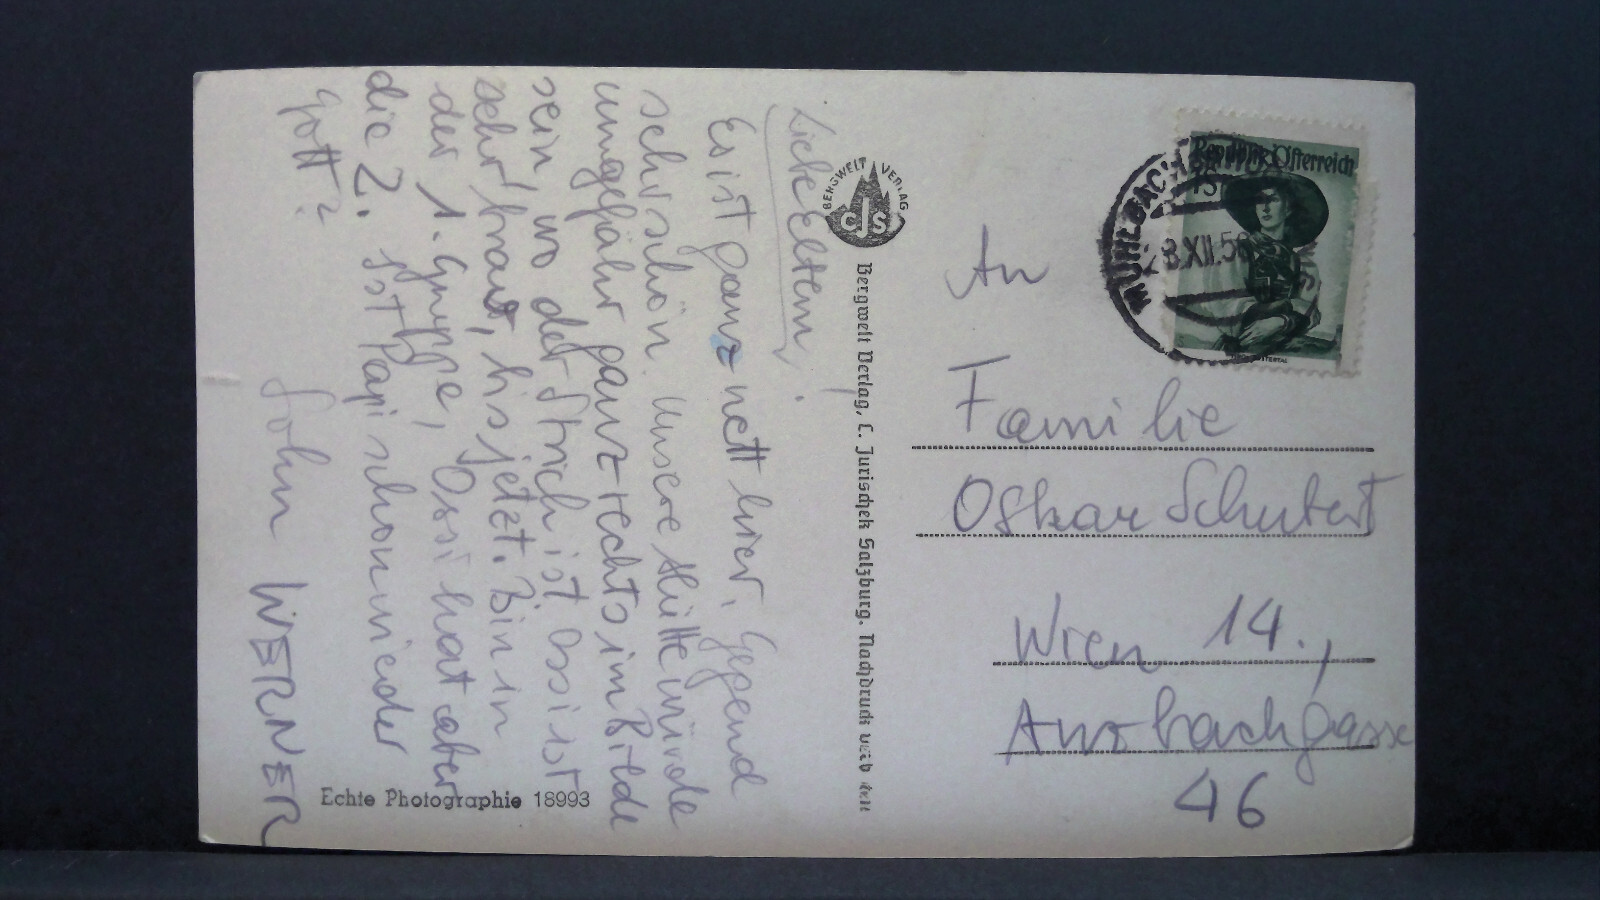 Liebe Eltern!
Es ist ganz nett hier. Gegend
sehr schön. Unsere Hütte würde
ungefähr ganz rechts im Bilde
sein, wo der Strich ist. Ossi ist
sehr brav, bis jetzt. Bin in
der 1. Gruppe, Ossi hat aber
die 2. Ist Papi schon wieder
gott?
Sohn WERNER
Echte Photographie 18993
BERGWELT VERLAG
CJS
Bergwelt Verlag, C. Jurischek Salzburg. Nachdruck verboten
Republik Österreich
MÜHLBACH
8.XII.56
An
Familie
Oskar Schubert
Wien 14.,
Amsbachgasse
46